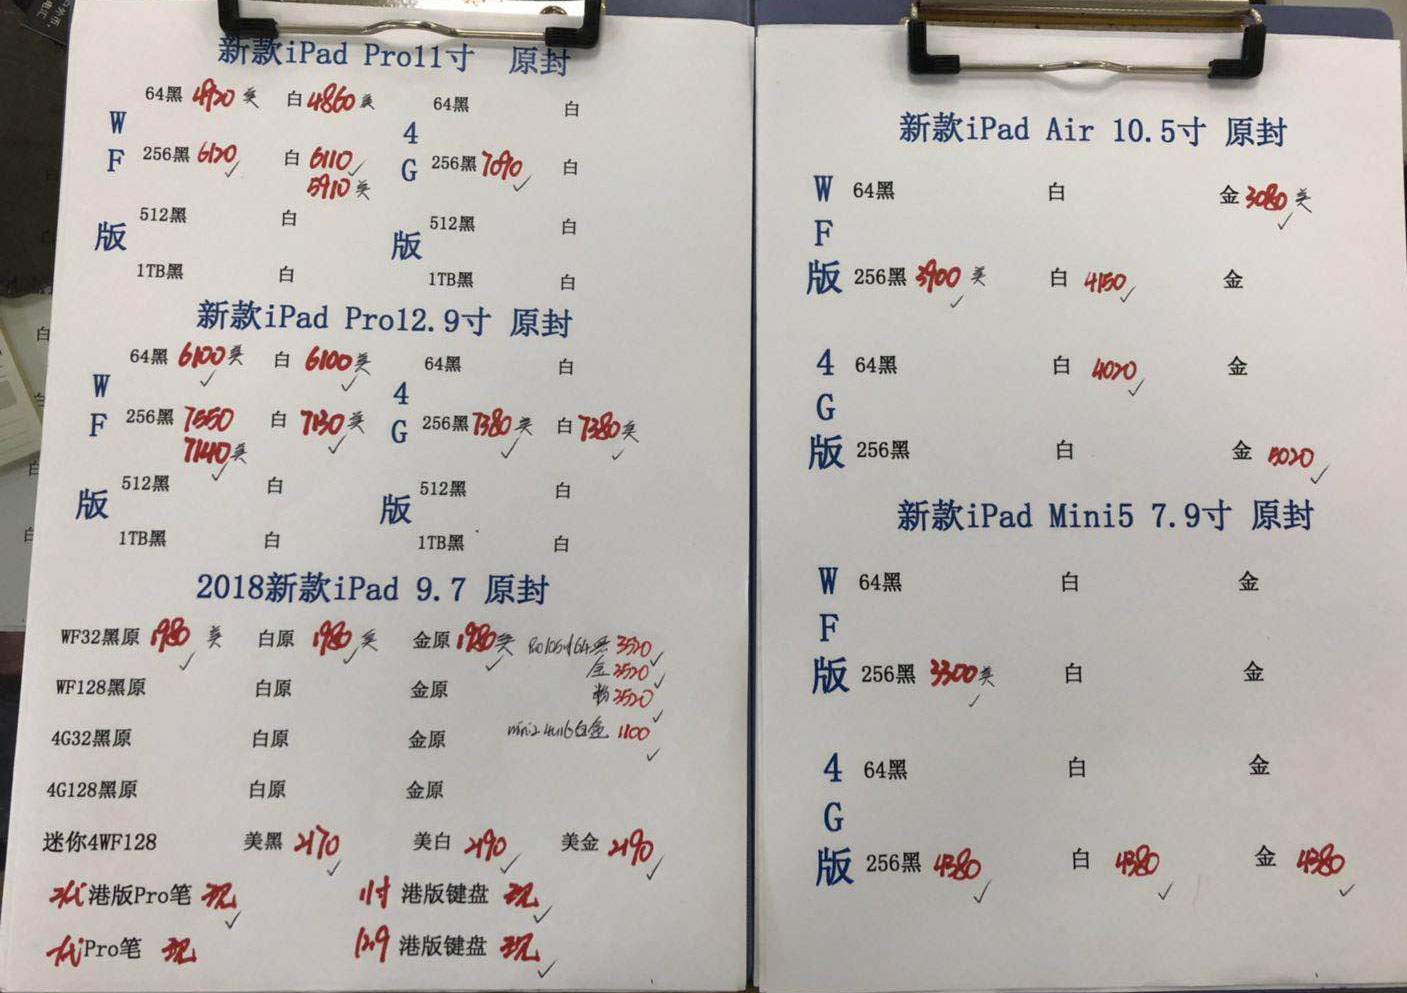 新款iPad Pro11寸 原封
W F 版
64黑 4920 美 白 4860 美
256黑 6120 白 6110
5910 美
512黑 白
1TB黑 白
4 G 版
64黑 白
256黑 7090 白
512黑 白
1TB黑 白
新款iPad Pro12.9寸 原封
W F 版
64黑 6100 美 白 6100 美
256黑 7550 白 7130 美
7140 美
512黑 白
1TB黑 白
4 G 版
64黑 白
256黑 7380 美 白 7380 美
512黑 白
1TB黑 白
2018新款iPad 9.7 原封
WF32黑原 1980 美 白原 1980 美 金原 1980 美
64黑 3520
金 3520
粉 3520
WF128黑原 白原 金原
mini2 白金 1100
4G32黑原 白原 金原
4G128黑原 白原 金原
迷你4WF128 美黑 2170 美白 2190 美金 2190
2代 港版Pro笔 现 11寸 港版键盘 现
1代 Pro笔 现 12.9 港版键盘 现
新款iPad Air 10.5寸 原封
W F 版
64黑 白 金 3080 美
256黑 3900 美 白 4150 金
4 G 版
64黑 白 4020 金
256黑 白 金 5020
新款iPad Mini5 7.9寸 原封
W F 版
64黑 白 金
256黑 3300 美 白 金
4 G 版
64黑 白 金
256黑 4380 白 4380 金 4380